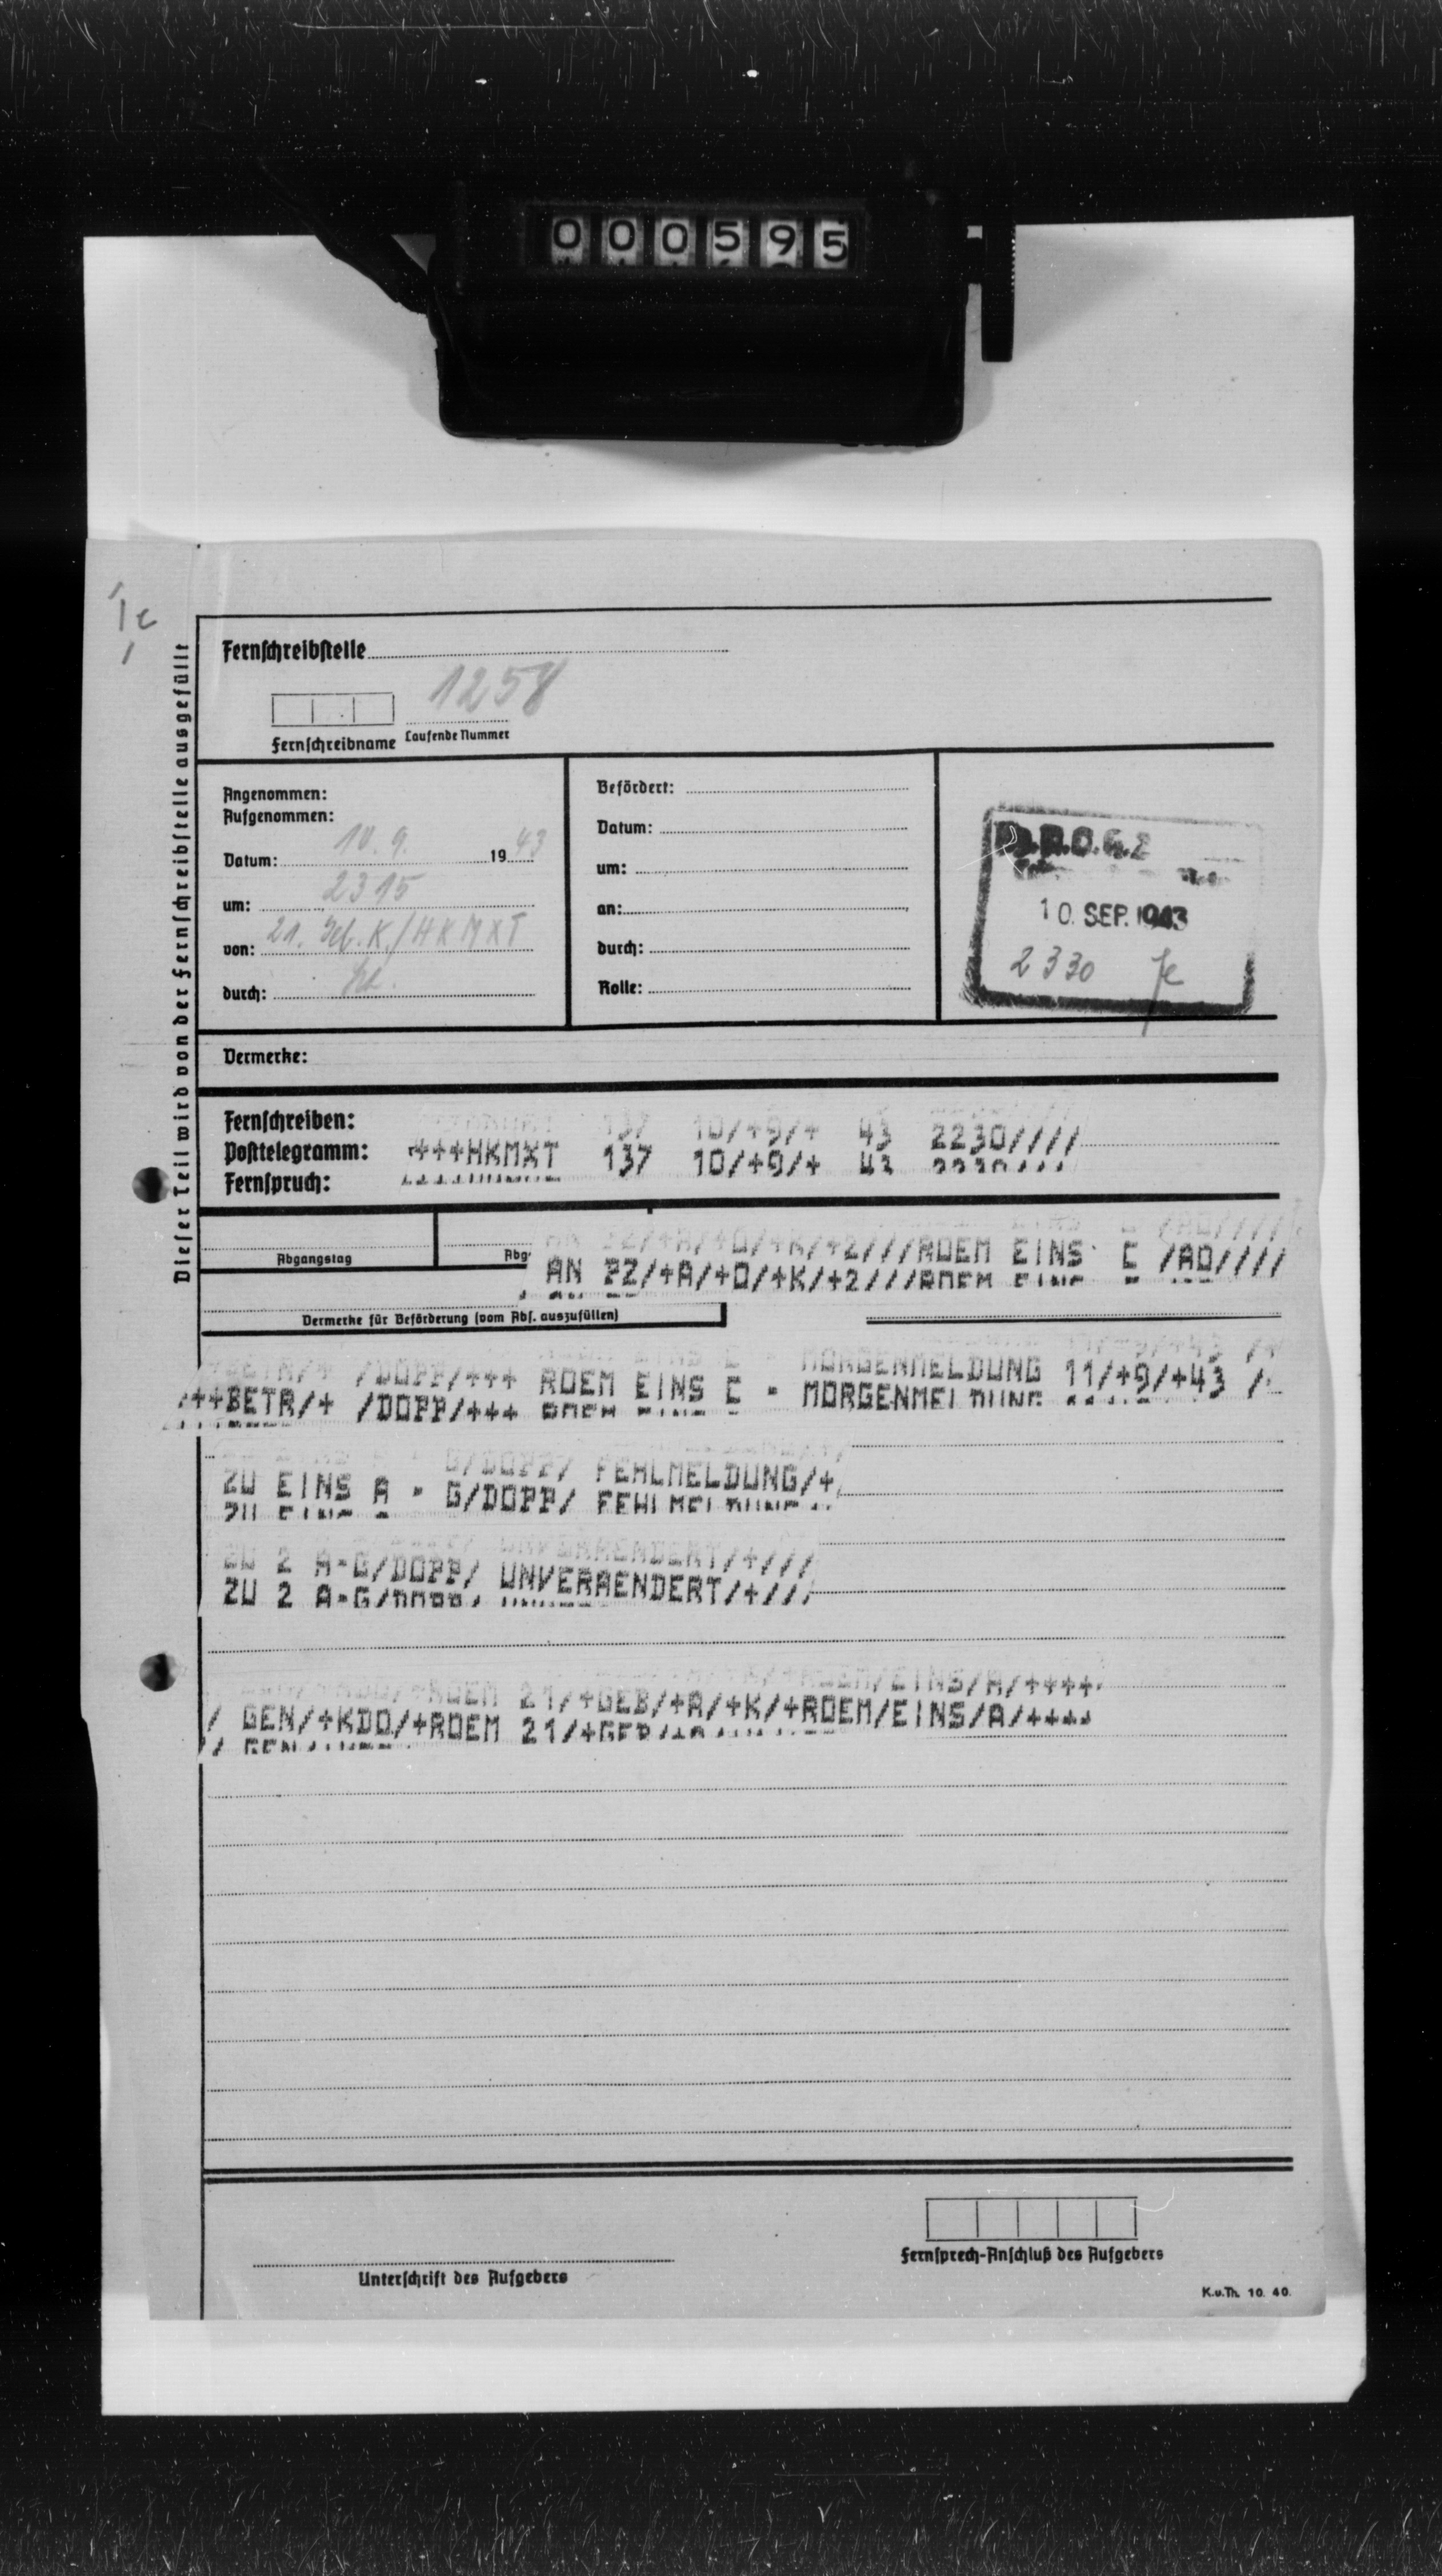 000595
Ic
Dieser Teil wird von der Fernschreibstelle ausgefüllt
Fernschreibstelle
1258
Fernschreibname Laufende Nummer
Angenommen:
Aufgenommen:
Datum: 10. 9. 19 43
um: 2315
von: 21. Geb. K./HKMXT
durch:
Befördert:
Datum:
um:
an:
durch:
Rolle:
10. SEP. 1943
2330
Vermerke:
Fernschreiben:
Posttelegramm: +++HKMXT 137 10/+9/+ 43 2230////
Fernspruch:
Abgangstag
Abg
AN PZ/+A/+O/+K/+2///ROEM EINS C /AO////
Vermerke für Beförderung (vom Abs. auszufüllen)
/++BETR/+ /DOPP/+++ ROEM EINS C - MORGENMELDUNG 11/+9/+43 /
ZU EINS A - G/DOPP/ FEHLMELDUNG/+
ZU 2 A-G/DOPP/ UNVERAENDERT/+///
/ GEN/+KDO/+ROEM 21/+GEB/+A/+K/+ROEM/EINS/A/++++
Unterschrift des Aufgebers
Fernsprech-Anschluß des Aufgebers
K.u.Th. 10. 40.